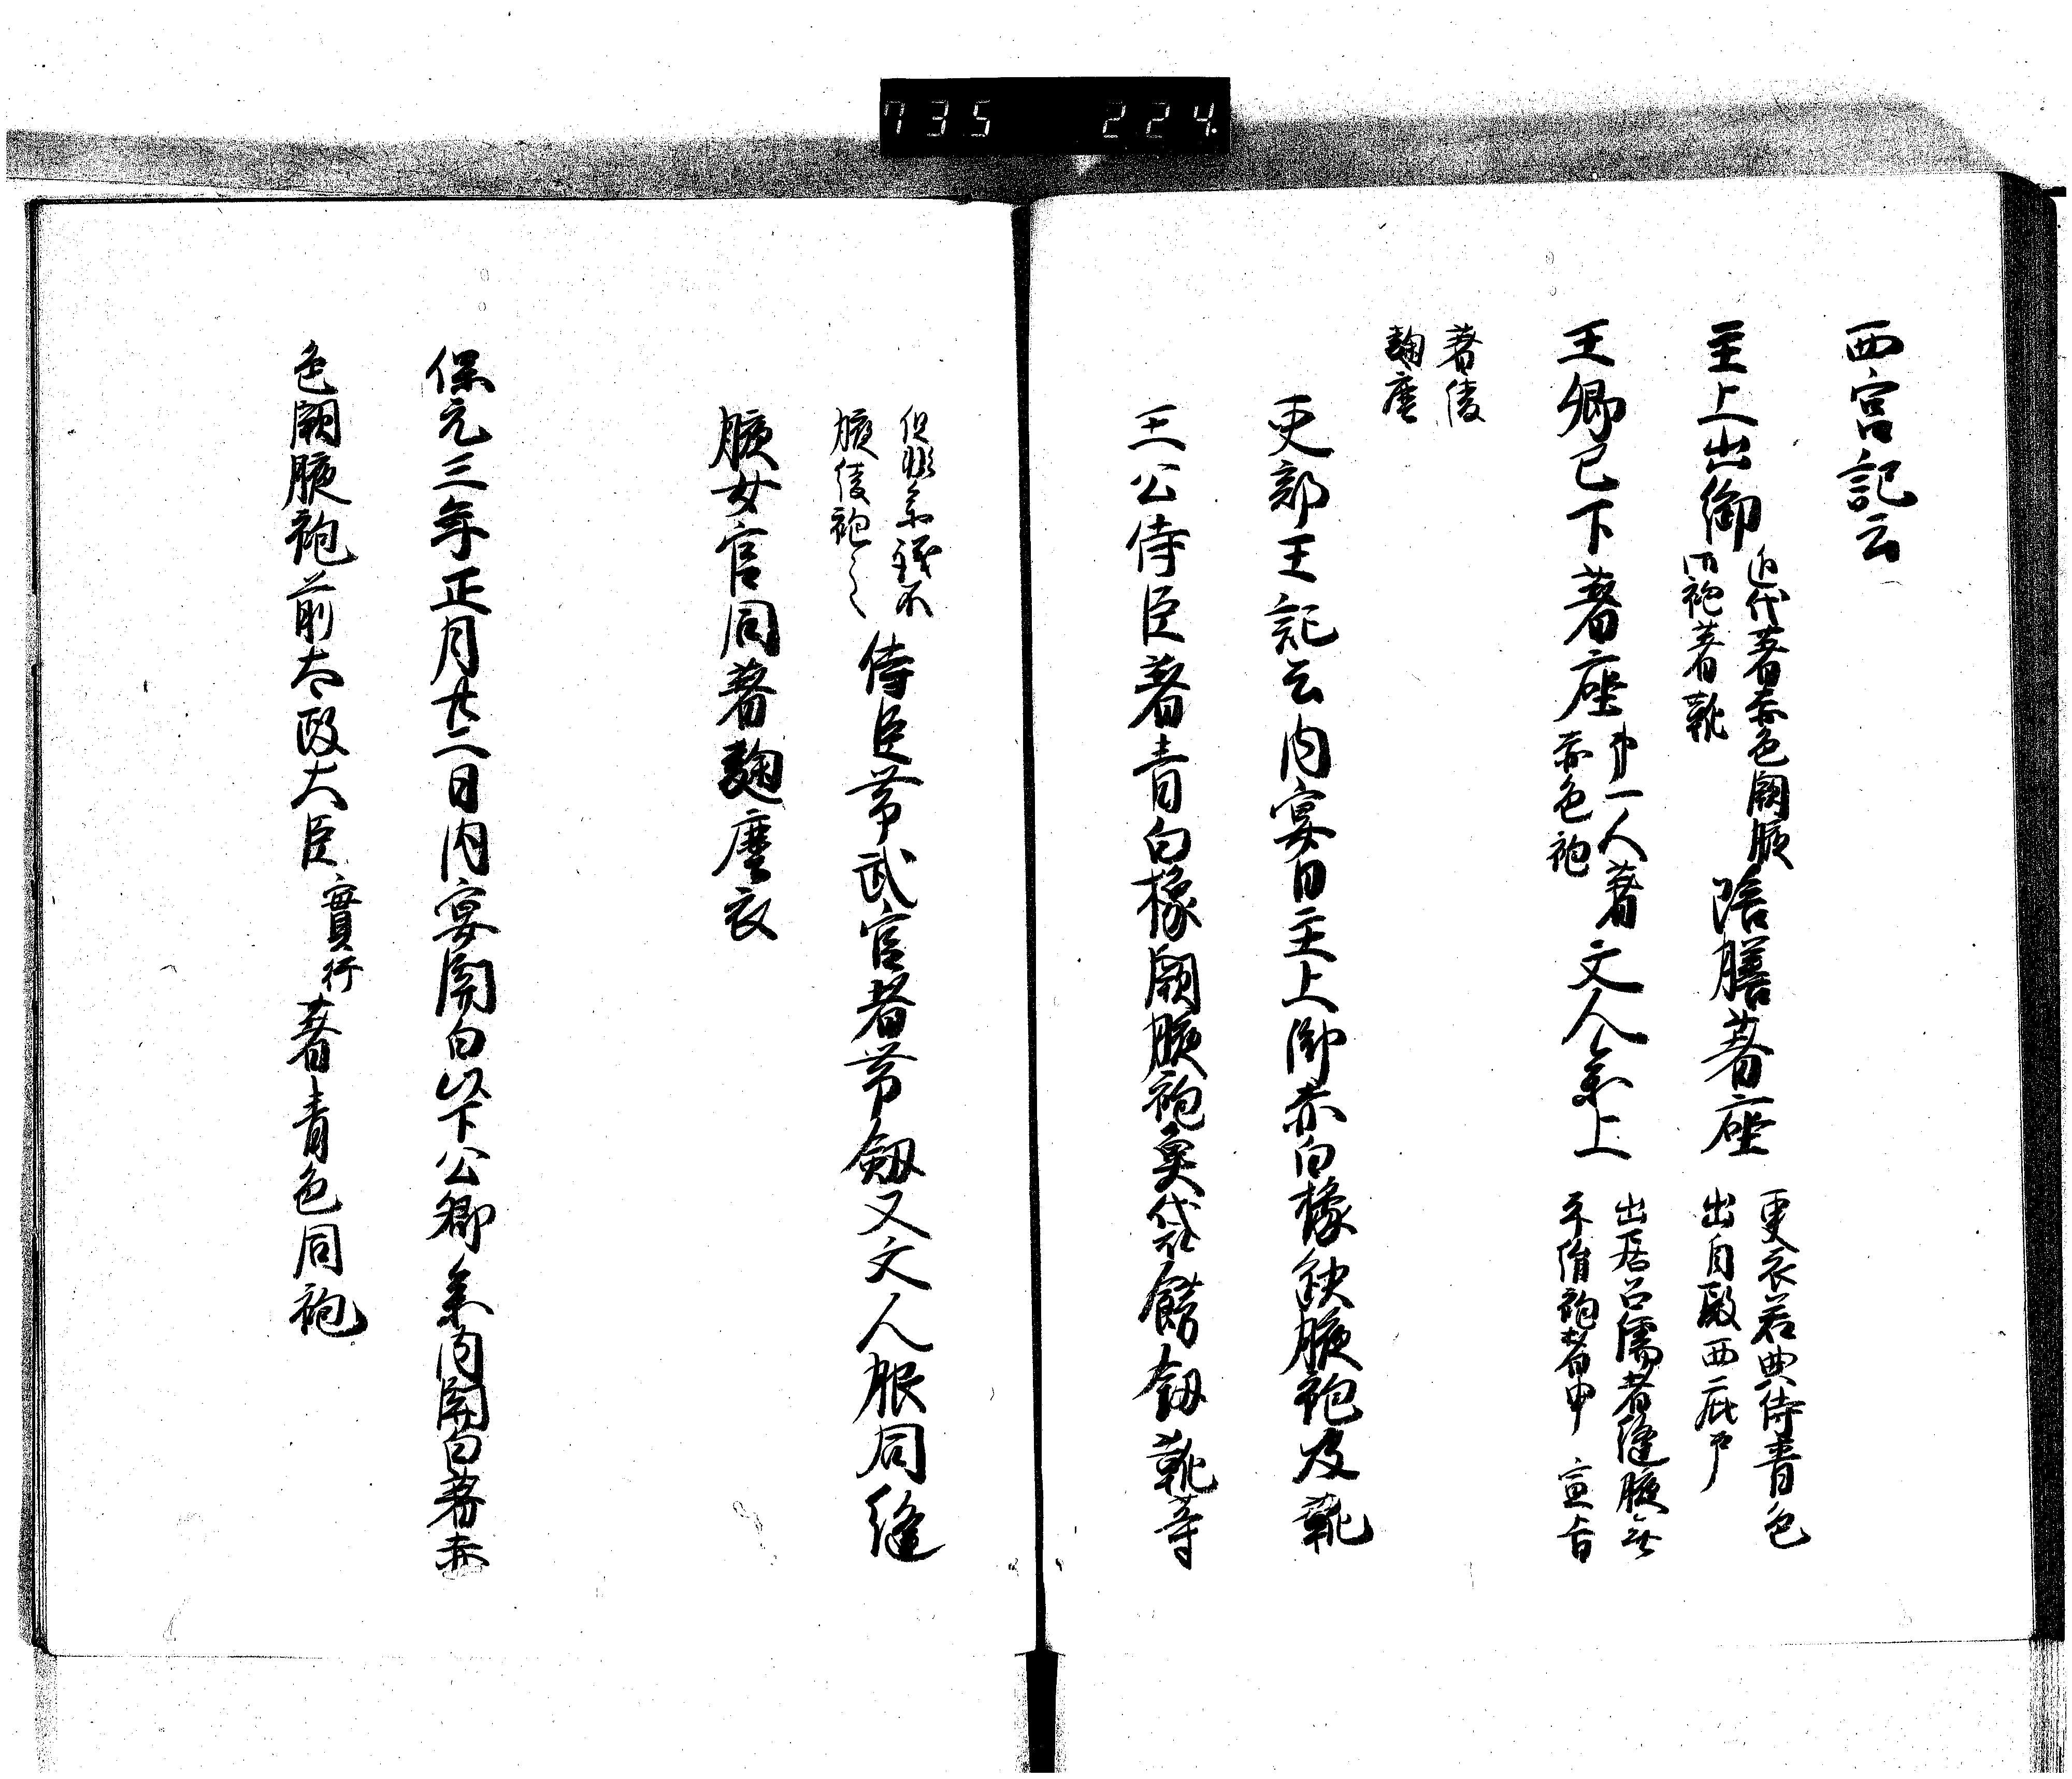 735 224
西宮記云
主上出御
近代著赤色闕腋
御袍著靴
陪膳著座
更衣若典侍青色
出自殿西庇戸
王卿已下著座
第一人著
赤色袍
文人参上
出居召儒者縫腋
平絹袍者申 宣旨
著綾
麹塵
吏部王記云内宴日主上御赤白橡缺腋袍及靴
王公侍臣著青白橡闕腋袍魚袋餝釼靴等
但非参議不
腋綾袍云々
侍臣帯武官者帯釼又文人服同縫
腋女官同著麹塵衣
保元三年正月廿二日内宴関白以下公卿参内関白著赤
色闕腋袍前太政大臣
實行
著青色同袍